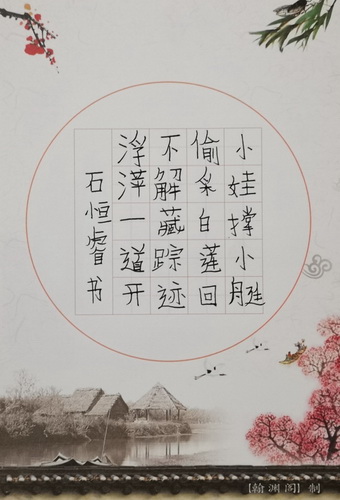 小娃撑小艇
偷采白莲回
不解藏踪迹
浮萍一道开
石恒睿书
【翰渊阁】制